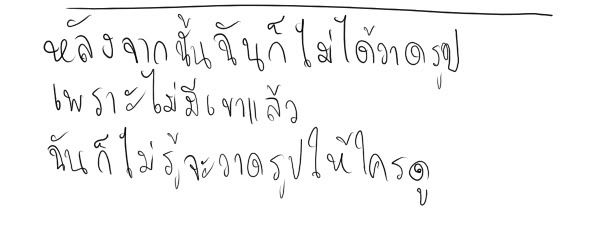 หลังจากนั้นฉันก็ไม่ได้วาดรูป
เพราะไม่มีเขาแล้ว
ฉันก็ไม่รู้จะวาดรูปให้ใครดู